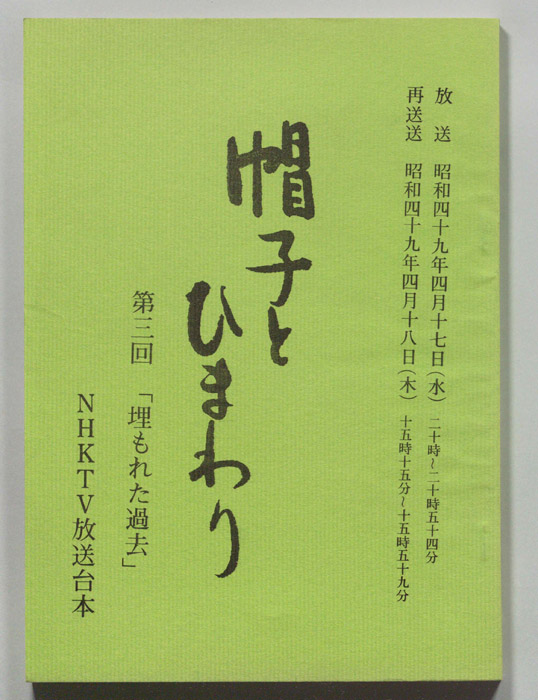 放送 昭和四十九年四月十七日(水) 二十時~二十時五十四分
再送送 昭和四十九年四月十八日(木) 十五時十五分~十五時五十九分
帽子と
ひまわり
第三回 「埋もれた過去」
NHKTV放送台本